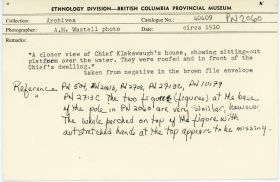 ETHNOLOGY DIVISION—BRITISH COLUMBIA PROVINCIAL MUSEUM
Collection: Archives Catalogue No.: 40409 PN2060
Photographer: A.H. Wastell photo Date: circa 1910
Remarks:
"A closer view of Chief Klakwaugh's house, showing sitting-out
platform over the water. They were roofed and in front of the
Chief's dwelling."
taken from negative in the brown file envelope
Reference PN PN 2708, PN 2713C, PN 10179
PN 2713C The two figures (figures) at the base
of the pole in PN 2060 are very similar, however
The whale perched on top of the figure with
outstretched hands at the top appears to be missing.